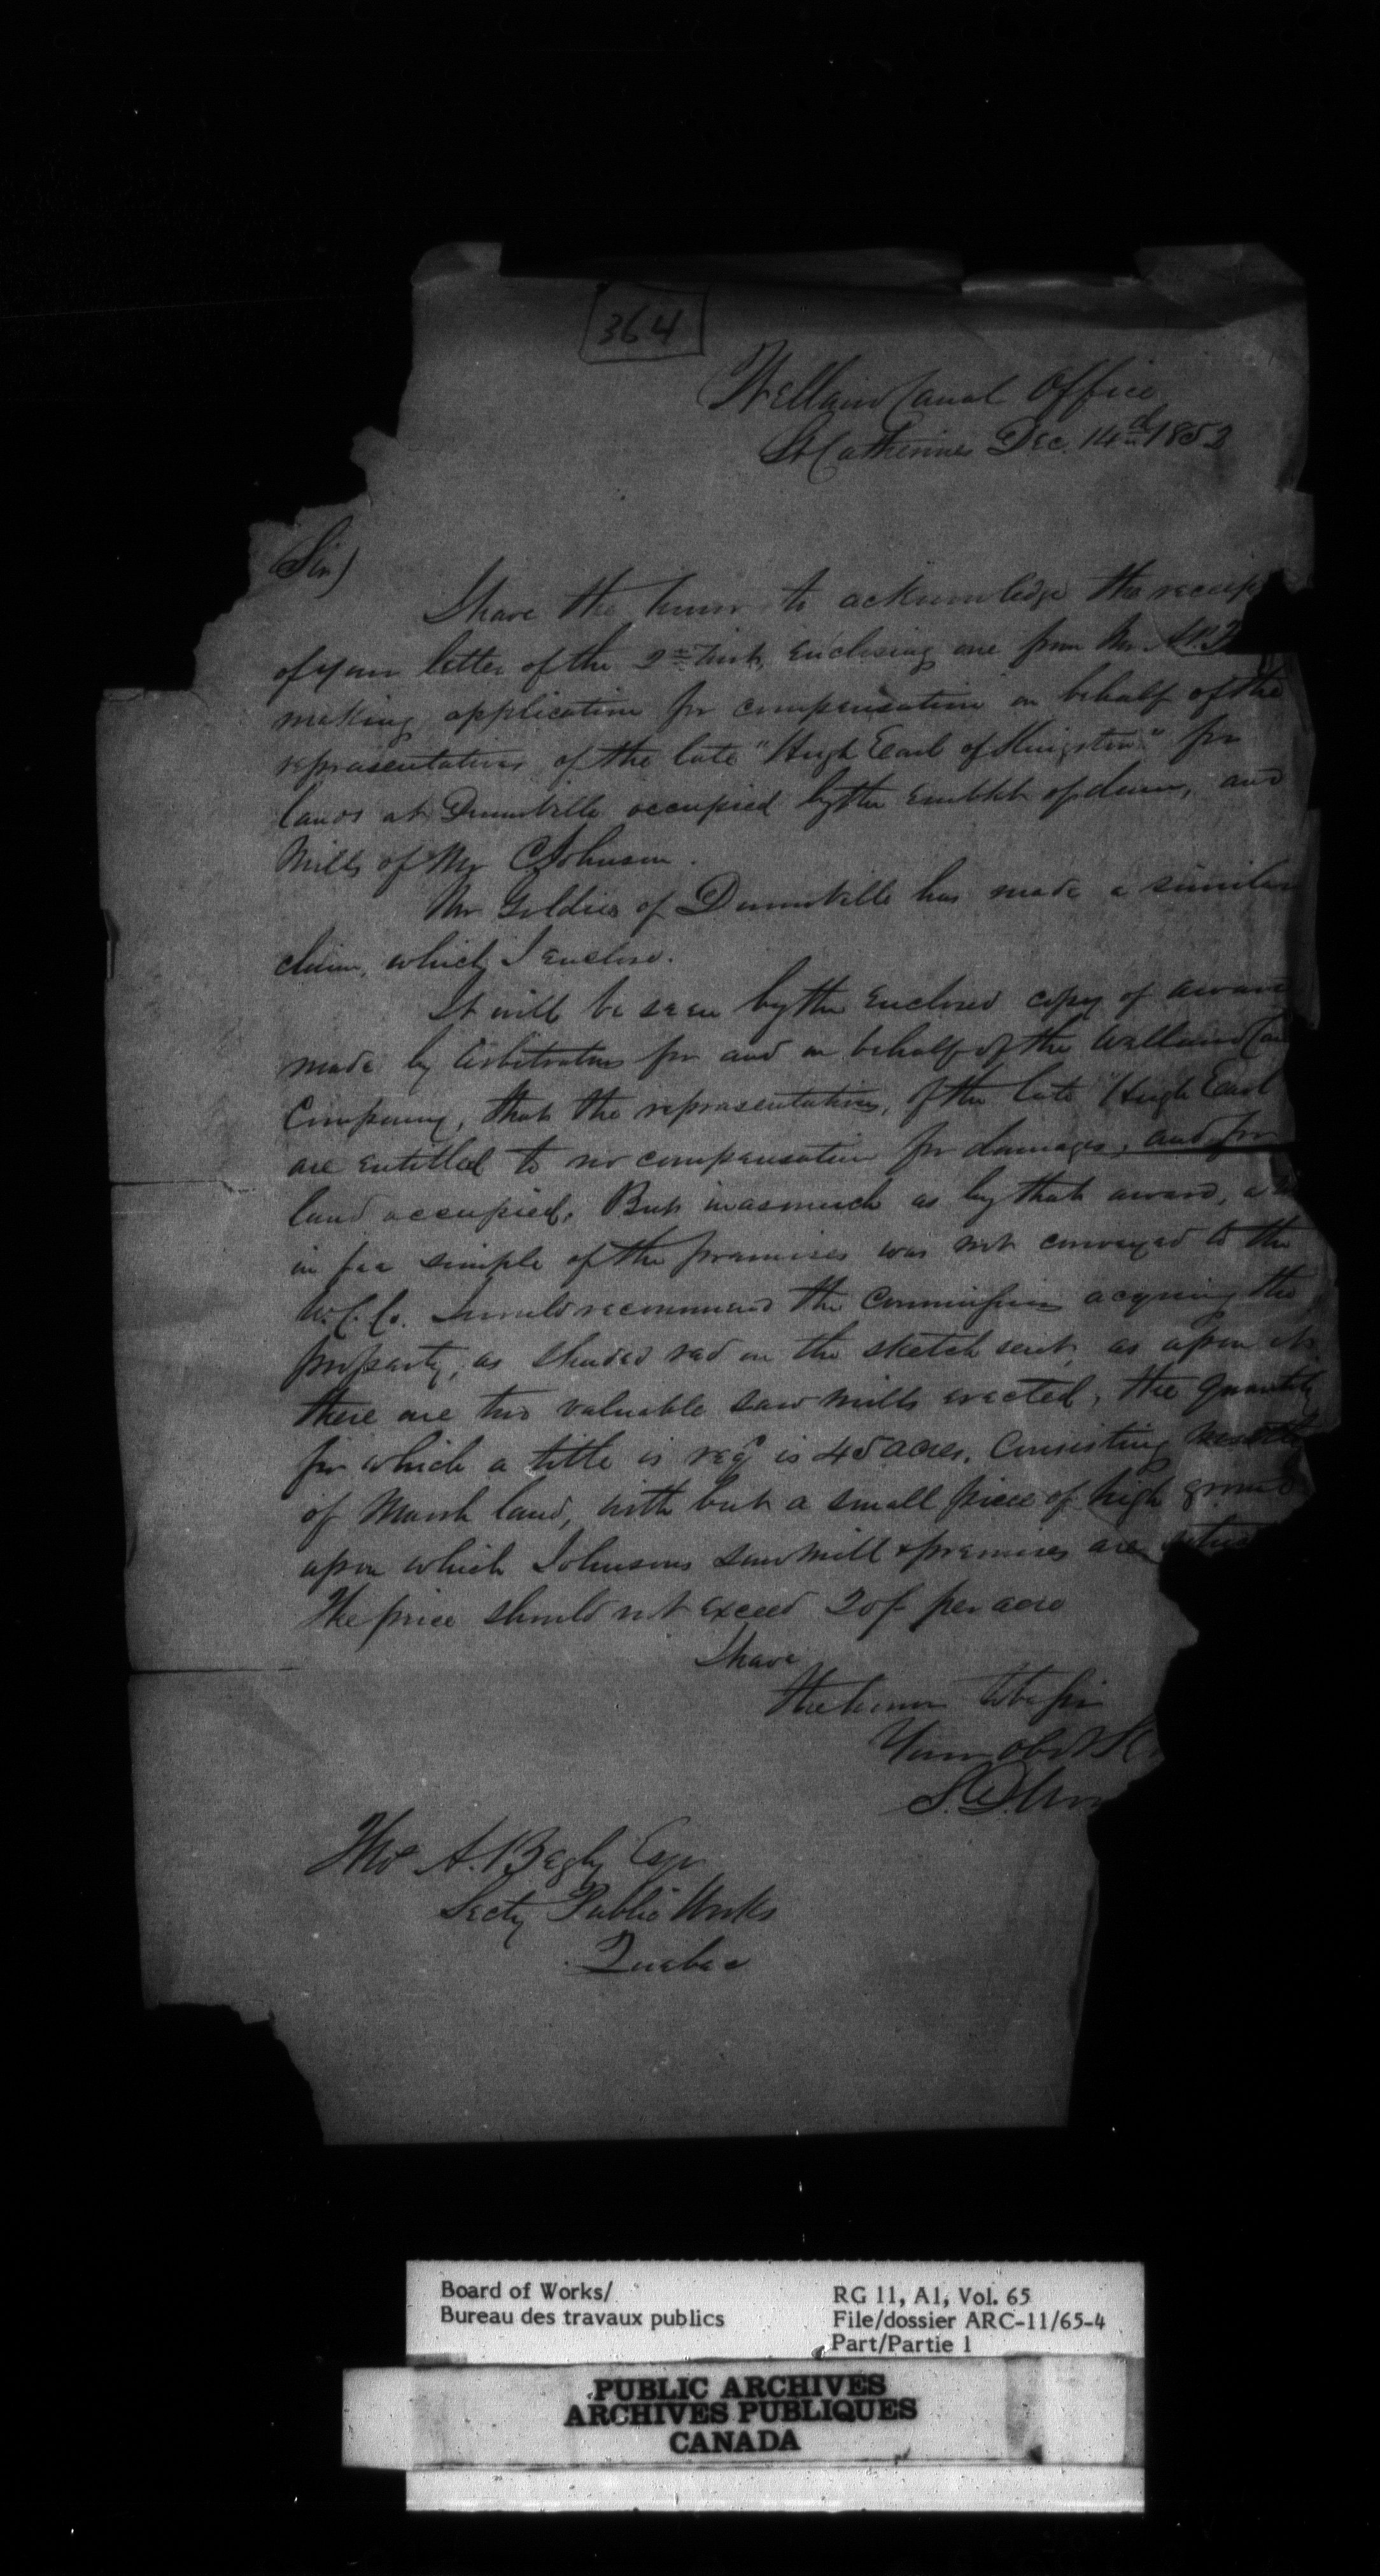 364
Welland Canal Office
St Catherines Dec. 14th 1852
Sir,
I have the honor to acknowledge the receip
of your letter of the 2nd inst, enclosing one from Mr.
making application for compensation on behalf of the
representatives of the late "Hugh Earl of Kingston" for
lands at Dunnville occupied by the embkt of dam, and
Mills of Mr C Johnson.
Mr Goldies of Dunnville has made a similar
claim, which I enclose.
It will be seen by the enclosed copy of award
made by Arbitrators for and on behalf of the Welland Can
Company, that the representatives, of the late "Hugh Earl
are entitled to no compensation for damages, and for
land occupied. But inasmuch as by that award, a
in fee simple of the premises was not conveyed to the
W.C.Co. I would recommend the Commissioners acquiring the
property, as shaded red on the sketch sent, as upon it
there are two valuable saw mills erected, the quantity
for which a title is reqd is 45 acres. Consisting mostly
of Marsh land, with but a small piece of high ground
upon which Johnsons saw mill & premises are
The price should not exceed 20/- per acre
I have
the honor to be Sir
Your obdt
Thos A. Begly Esqr
Secty Public Works
Quebec
Board of Works/
Bureau des travaux publics
RG 11, A1, Vol. 65
File/dossier ARC-11/65-4
Part/Partie 1
PUBLIC ARCHIVES
ARCHIVES PUBLIQUES
CANADA